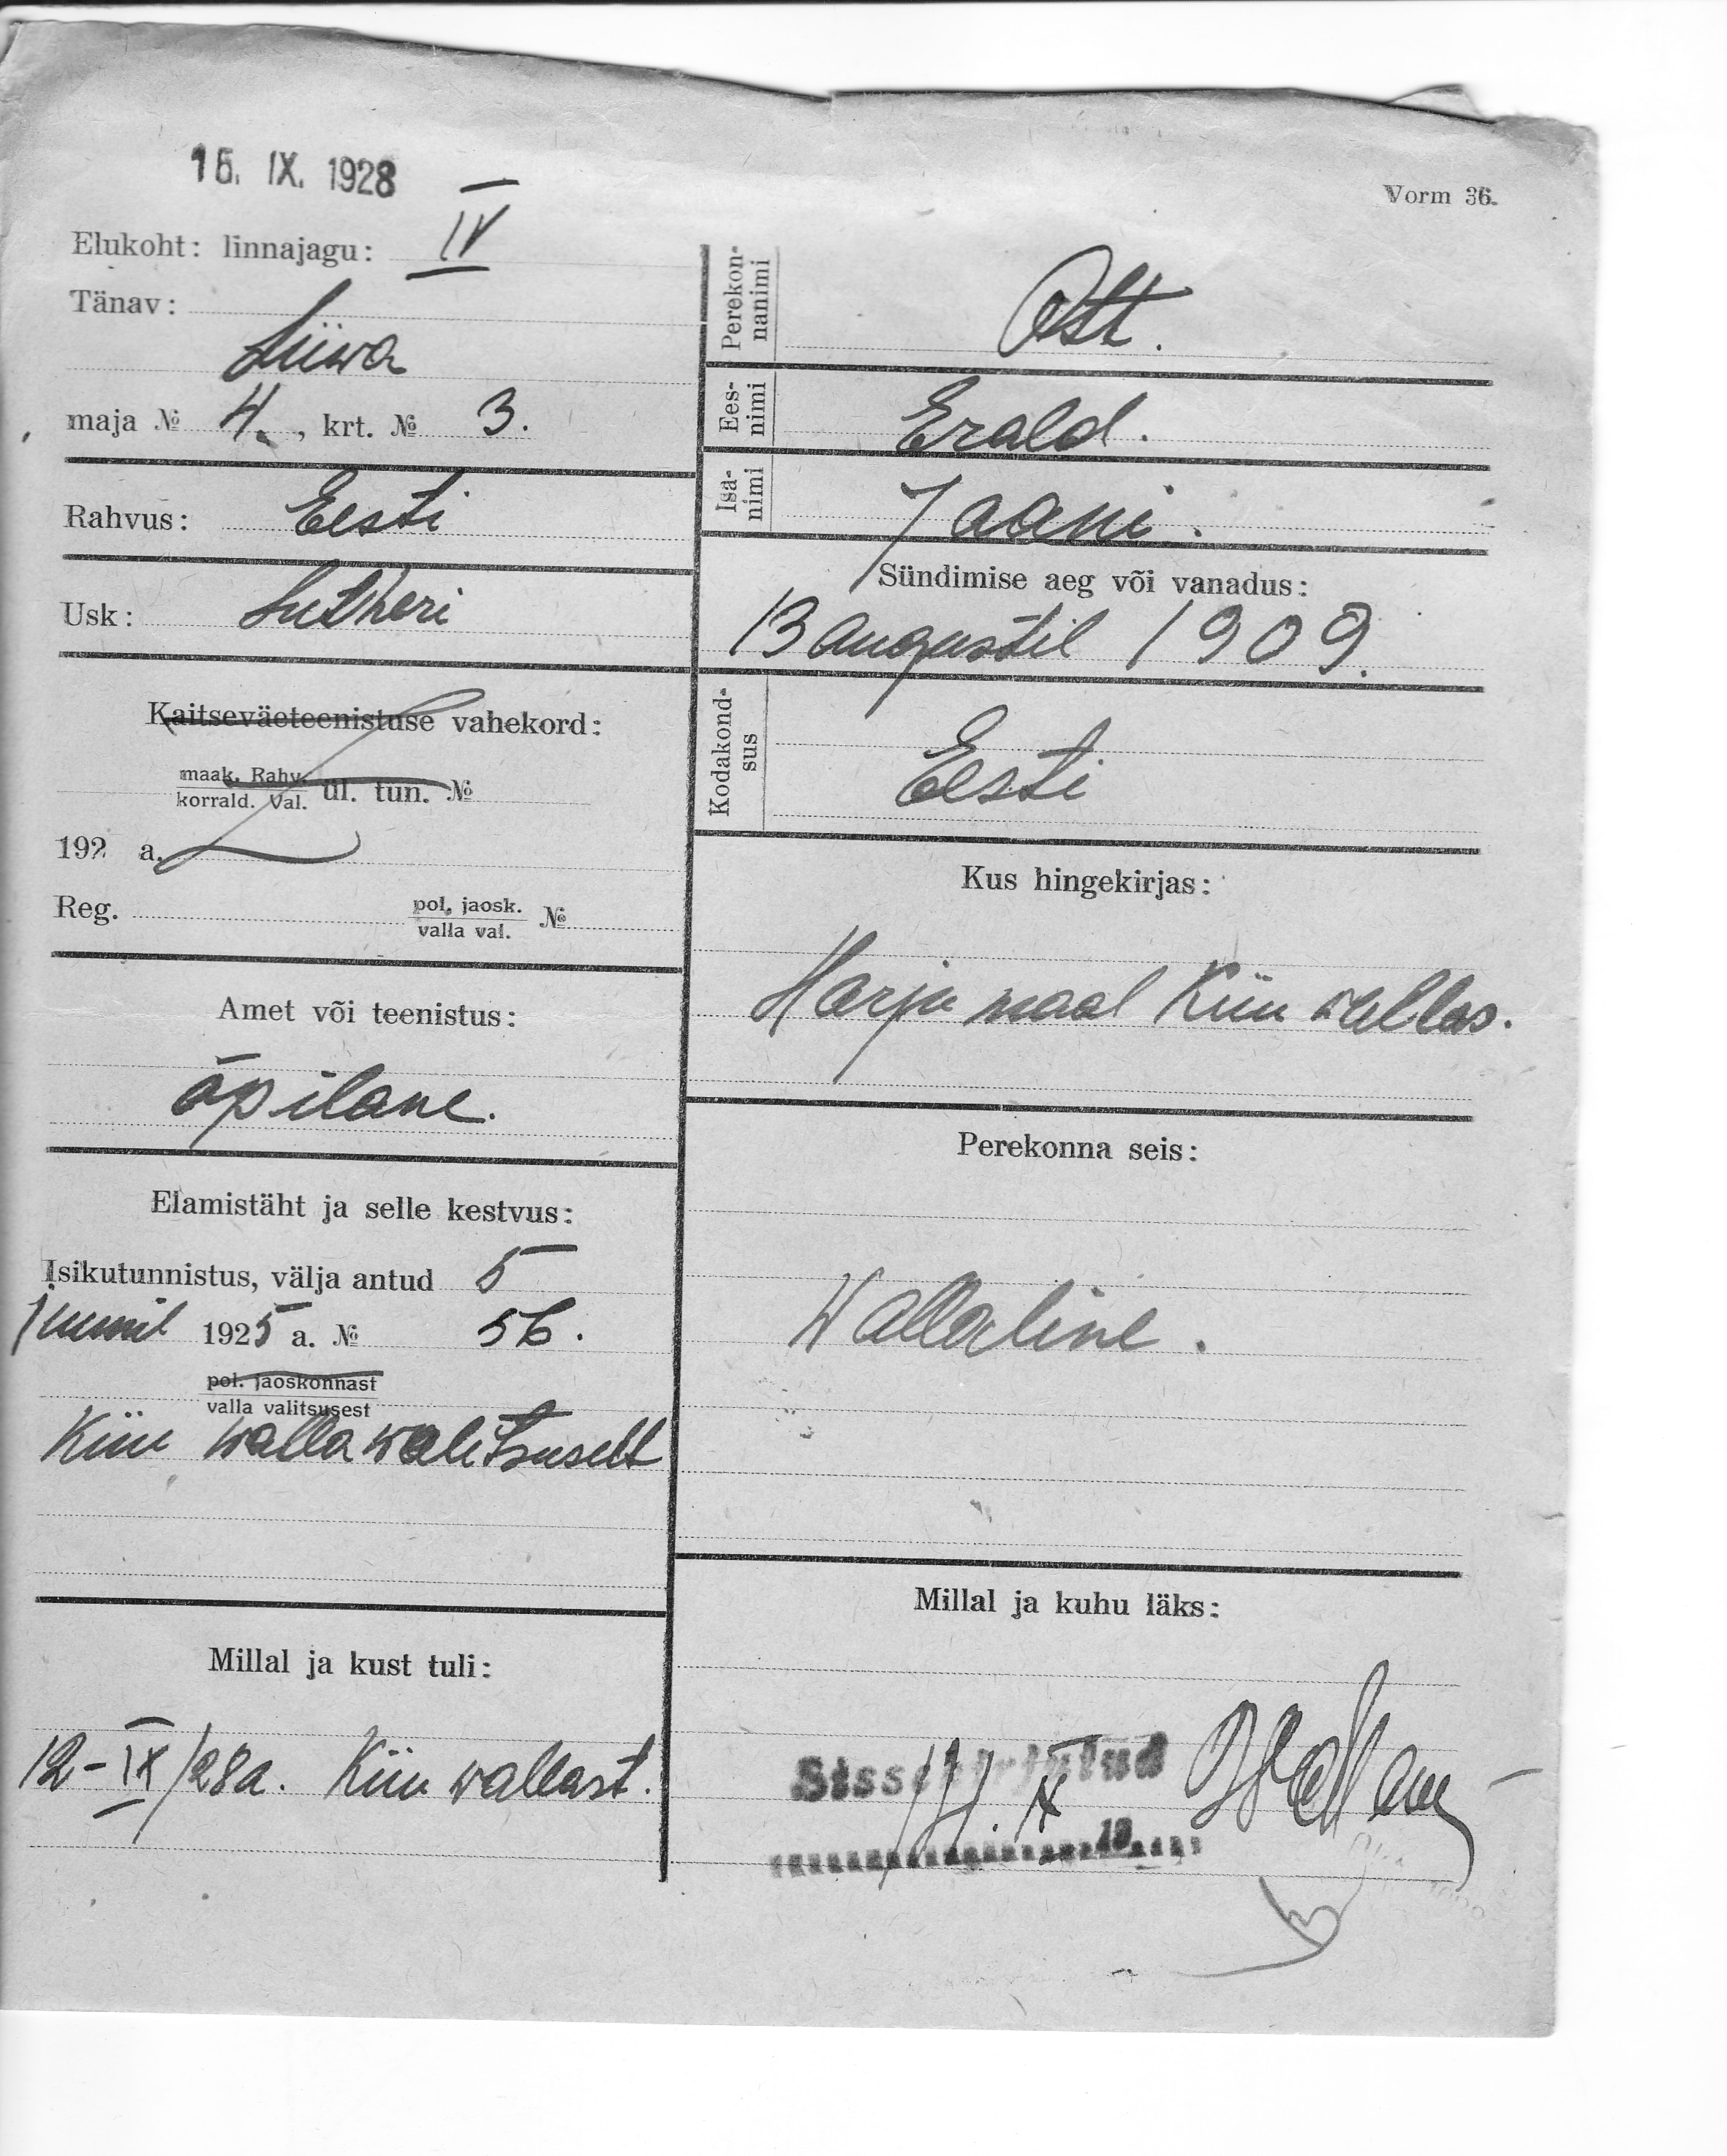 16. IX. 1928
Vorm 36.
Elukoht: linnajagu: IV
Tänav:
Liiwa
maja № 4., krt. № 3.
Rahvus: Eesti
Usk: Lutheri
Kaitseväeteenistuse vahekord:
maak. Rahv.
korrald. Val. ül. tun. №
192 a.
Reg. pol. jaosk. №
valla val.
Amet või teenistus:
õpilane.
Elamistäht ja selle kestvus:
Isikutunnistus, välja antud 5
juunil 1925 a. № 56.
pol. jaoskonnast
valla valitsusest
Kiiu wallawalitsuselt
Millal ja kust tuli:
12-IX/28a. Kiiu wallast.
Perekon-
nanimi
Ott.
Ees-
nimi
Erald.
Isa-
nimi
Jaani.
Sündimise aeg või vanadus:
13 augustil 1909.
Kodakond-
sus
Eesti
Kus hingekirjas:
Harju maal Kiiu wallas.
Perekonna seis:
Wallaline.
Millal ja kuhu läks:
Sissekirjutud
19